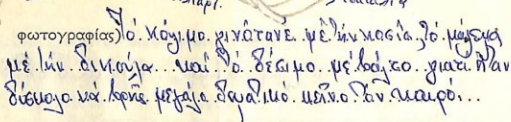 φωτογραφίας) Τό κόψιμο γινότανε μέ τήν κοσιά, τό μάζεμα
μέ τήν δικούλα... καί τό δέσιμο μέ βούρλο γιατί ἦταν
δύσκολο νά βρῆς μεγάλο δεματικό κεῖνο τόν καιρό...